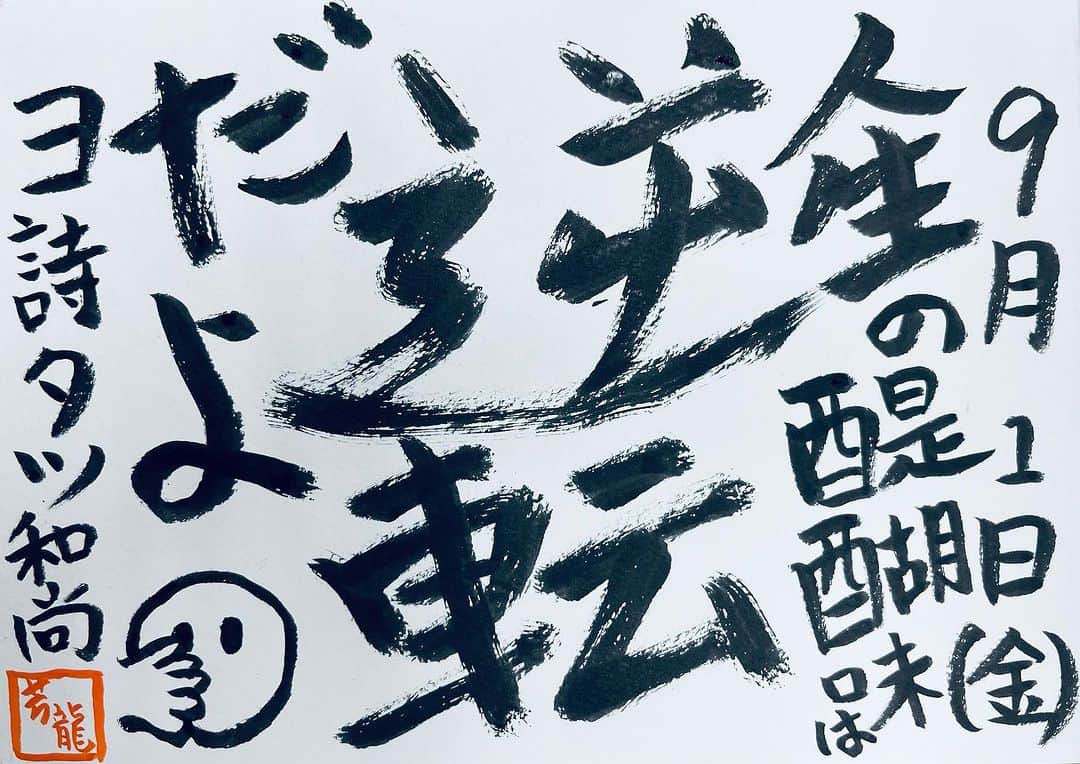 9月1日(金)
人生の醍醐味は
逆転
だよ
ヨ詩タツ和尚
芳龍